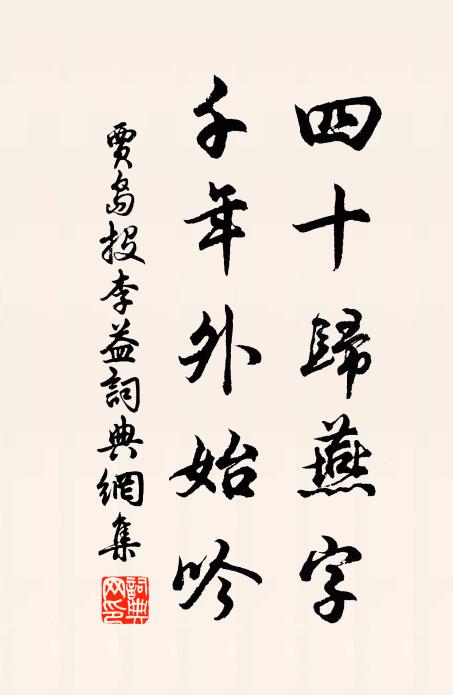 四十歸燕字
千年外始吟
賈島投李益詞典網集
詞典網印